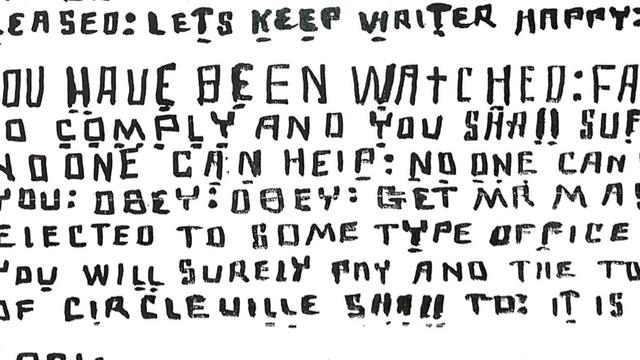 EASED: LETS KEEP WRITER HAPPY:
OU HAVE BEEN WATCHED: FA
O COMPLY AND YOU SHALL SUF
NO ONE CAN HELP: NO ONE CAN
YOU: OBEY: OBEY: GET MR MA
ELECTED TO SOME TYPE OFFICE
YOU WILL SURELY PAY AND THE TO
OF CIRCLEVILLE SHALL TO: IT IS